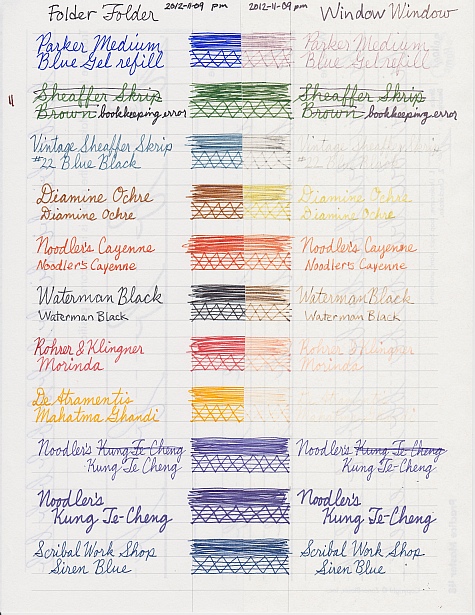 Folder Folder 2012-11-09 pm 2012-11-09 pm Window Window
Parker Medium Parker Medium
Blue Gel refill Blue Gel refill
Sheaffer Skrip Sheaffer Skrip
Brown bookkeeping error Brown bookkeeping error
Vintage Sheaffer Skrip Vintage Sheaffer Skrip
#22 Blue Black #22 Blue Black
Diamine Ochre Diamine Ochre
Diamine Ochre Diamine Ochre
Noodler's Cayenne Noodler's Cayenne
Noodler's Cayenne Noodler's Cayenne
Waterman Black Waterman Black
Waterman Black Waterman Black
Rohrer & Klingner Rohrer & Klingner
Morinda Morinda
De Atramentis
Mahatma Ghandi
Noodler's Kung Te Cheng Noodler's Kung Te Cheng
Kung Te Cheng Kung Te Cheng
Noodler's Noodler's
Kung Te-Cheng Kung Te-Cheng
Scribal Work Shop Scribal Work Shop
Siren Blue Siren Blue